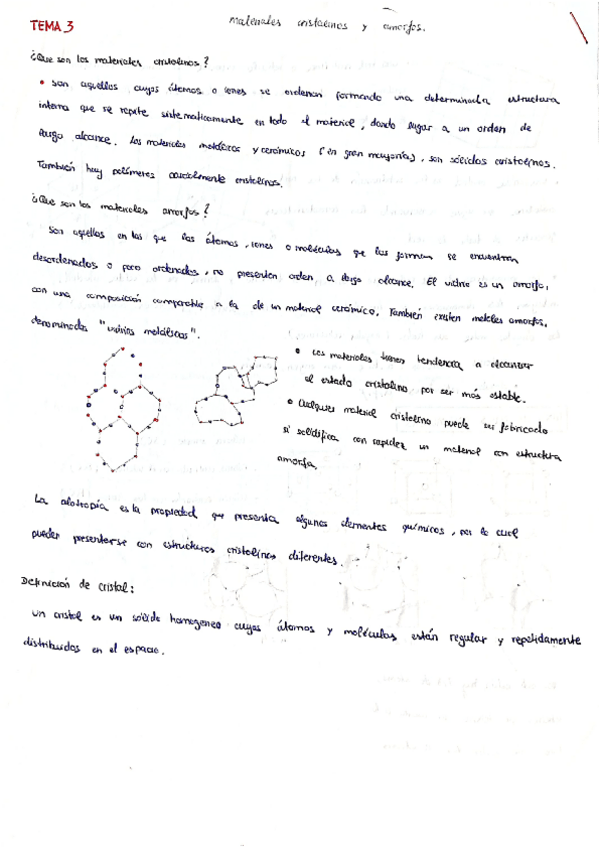 TEMA 3
Materiales cristalinos y amorfos.
¿Que son los materiales cristalinos?
• son aquellos cuyos átomos o iones se ordenan formando una determinada estructura
interna que se repite sistemáticamente en todo el material, dando lugar a un orden de
largo alcance. Los materiales metálicos y cerámicos (en gran mayoría), son sólidos cristalinos.
También hay polímeros parcialmente cristalinos.
¿Que son los materiales amorfos?
Son aquellos en los que los átomos, iones o moléculas que los forman se encuentran
desordenados o poco ordenados, no presentan orden a largo alcance. El vidrio es un amorfo,
con una composición comparable a la de un material cerámico. También existen metales amorfos,
denominados "vidrios metálicos".
• Los materiales tienen tendencia a alcanzar
el estado cristalino por ser más estable.
• Cualquier material cristalino puede ser fabricado
si solidifica con rapidez un material con estructura
amorfa.
La alotropía es la propiedad que presenta algunos elementos químicos, por lo cual
pueden presentarse con estructuras cristalinas diferentes.
Definición de cristal:
un cristal es un sólido homogeneo cuyos átomos y moléculas están regular y repetidamente
distribuidos en el espacio.